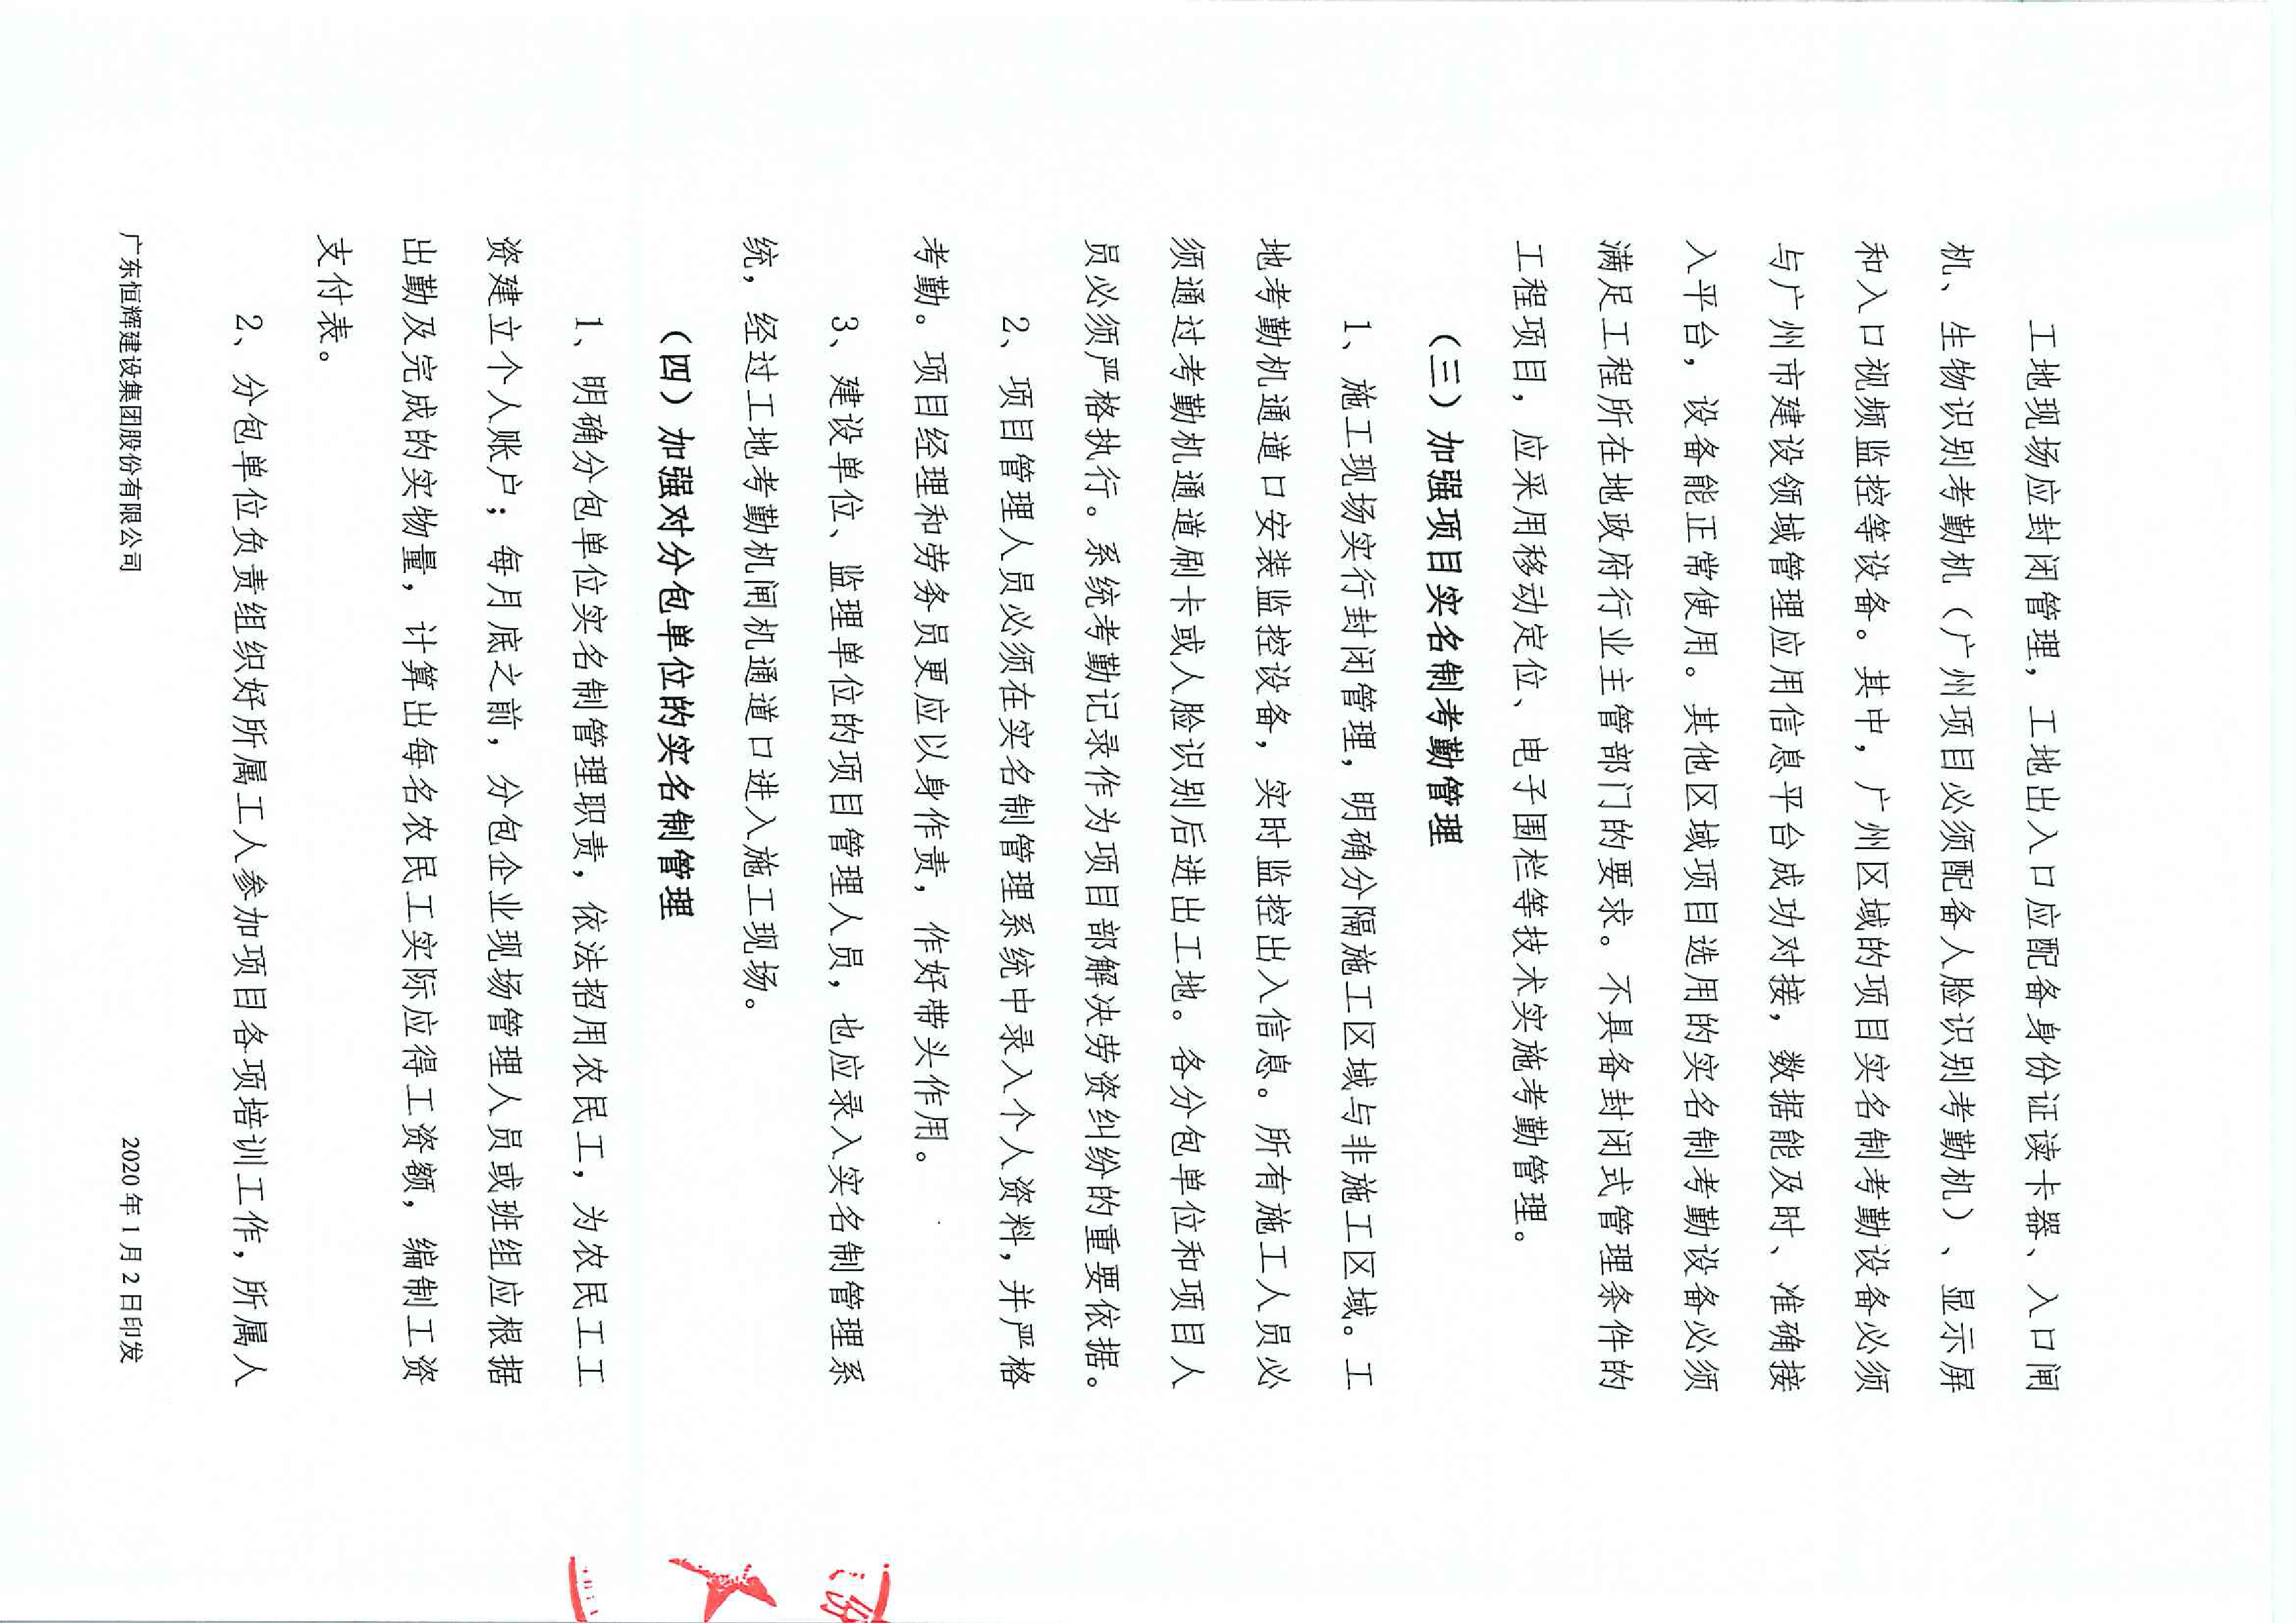 工地现场应封闭管理，工地出入口应配备身份证读卡器、入口闸
机、生物识别考勤机（广州项目必须配备人脸识别考勤机）、显示屏
和入口视频监控等设备。其中，广州区域的项目实名制考勤设备必须
与广州市建设领域管理应用信息平台成功对接，数据能及时、准确接
入平台，设备能正常使用。其他区域项目选用的实名制考勤设备必须
满足工程所在地政府行业主管部门的要求。不具备封闭式管理条件的
工程项目，应采用移动定位、电子围栏等技术实施考勤管理。
（三）加强项目实名制考勤管理
1、施工现场实行封闭管理，明确分隔施工区域与非施工区域。工
地考勤机通道口安装监控设备，实时监控出入信息。所有施工人员必
须通过考勤机通道刷卡或人脸识别后进出工地。各分包单位和项目人
员必须严格执行。系统考勤记录作为项目部解决劳资纠纷的重要依据。
2、项目管理人员必须在实名制管理系统中录入个人资料，并严格
考勤。项目经理和劳务员更应以身作责，作好带头作用。
3、建设单位、监理单位的项目管理人员，也应录入实名制管理系
统，经过工地考勤机闸机通道口进入施工现场。
（四）加强对分包单位的实名制管理
1、明确分包单位实名制管理职责，依法招用农民工，为农民工工
资建立个人账户；每月底之前，分包企业现场管理人员或班组应根据
出勤及完成的实物量，计算出每名农民工实际应得工资额，编制工资
支付表。
2、分包单位负责组织好所属工人参加项目各项培训工作，所属人
广东恒辉建设集团股份有限公司 2020年1月2日印发